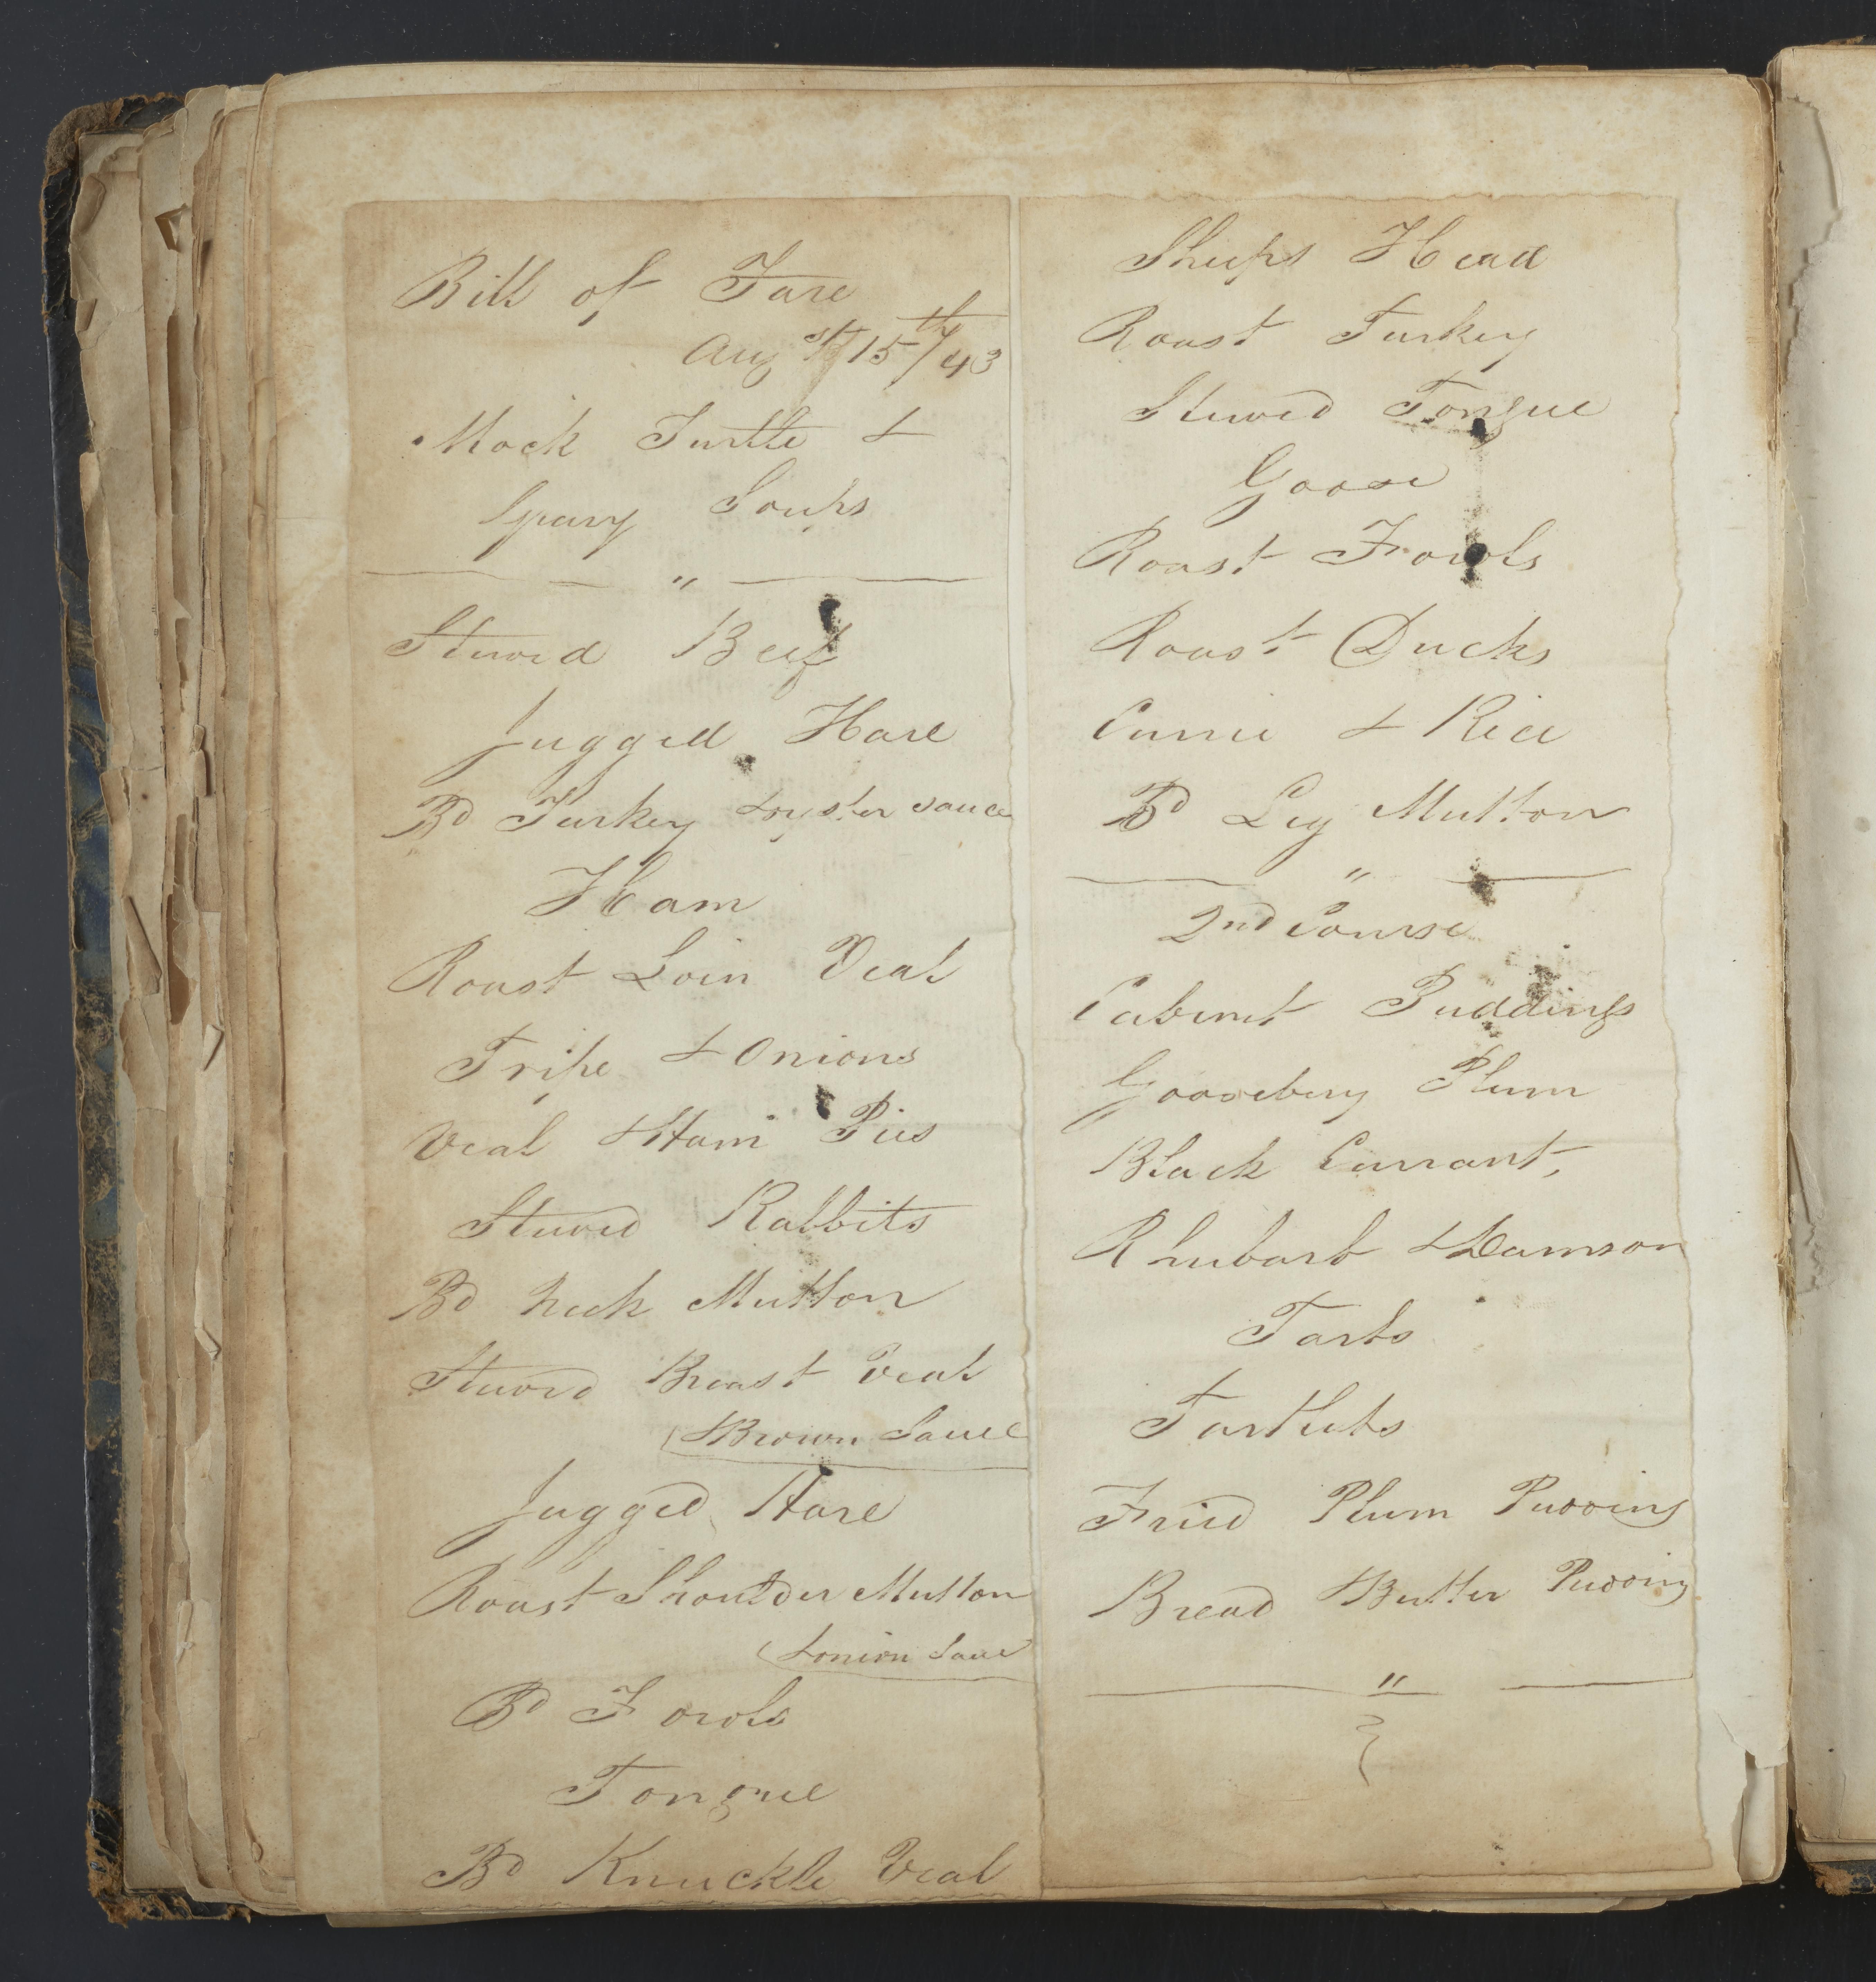 Bill of Fare
Augst 15th/43
Mock Turtle &
Gravy Soups
"
Stewed Beef
Jugged Hare
Bd Turkey & oyster sauce
Ham
Roast Loin Veal
Tripe & Onions
Veal & Ham Pies
Stewed Rabbits
Bd Neck Mutton
Stewed Breast Veal
& Brown Sauce
Jugged Hare
Roast Shoulder Mutton
& onion Sauce
Bd Fowls
Tongue
Bd Knuckle Veal
Sheeps Head
Roast Turkey
Stewed Tongue
Goose
Roast Fowls
Roast Ducks
Currie & Rice
Bd Leg Mutton
"
2nd Course
Cabinet Puddings
Gooseberry Plum
Black Currant,
Rhubarb & Damson
Tarts
Tartlets
Fried Plum Pudding
Bread & Butter Pudding
"